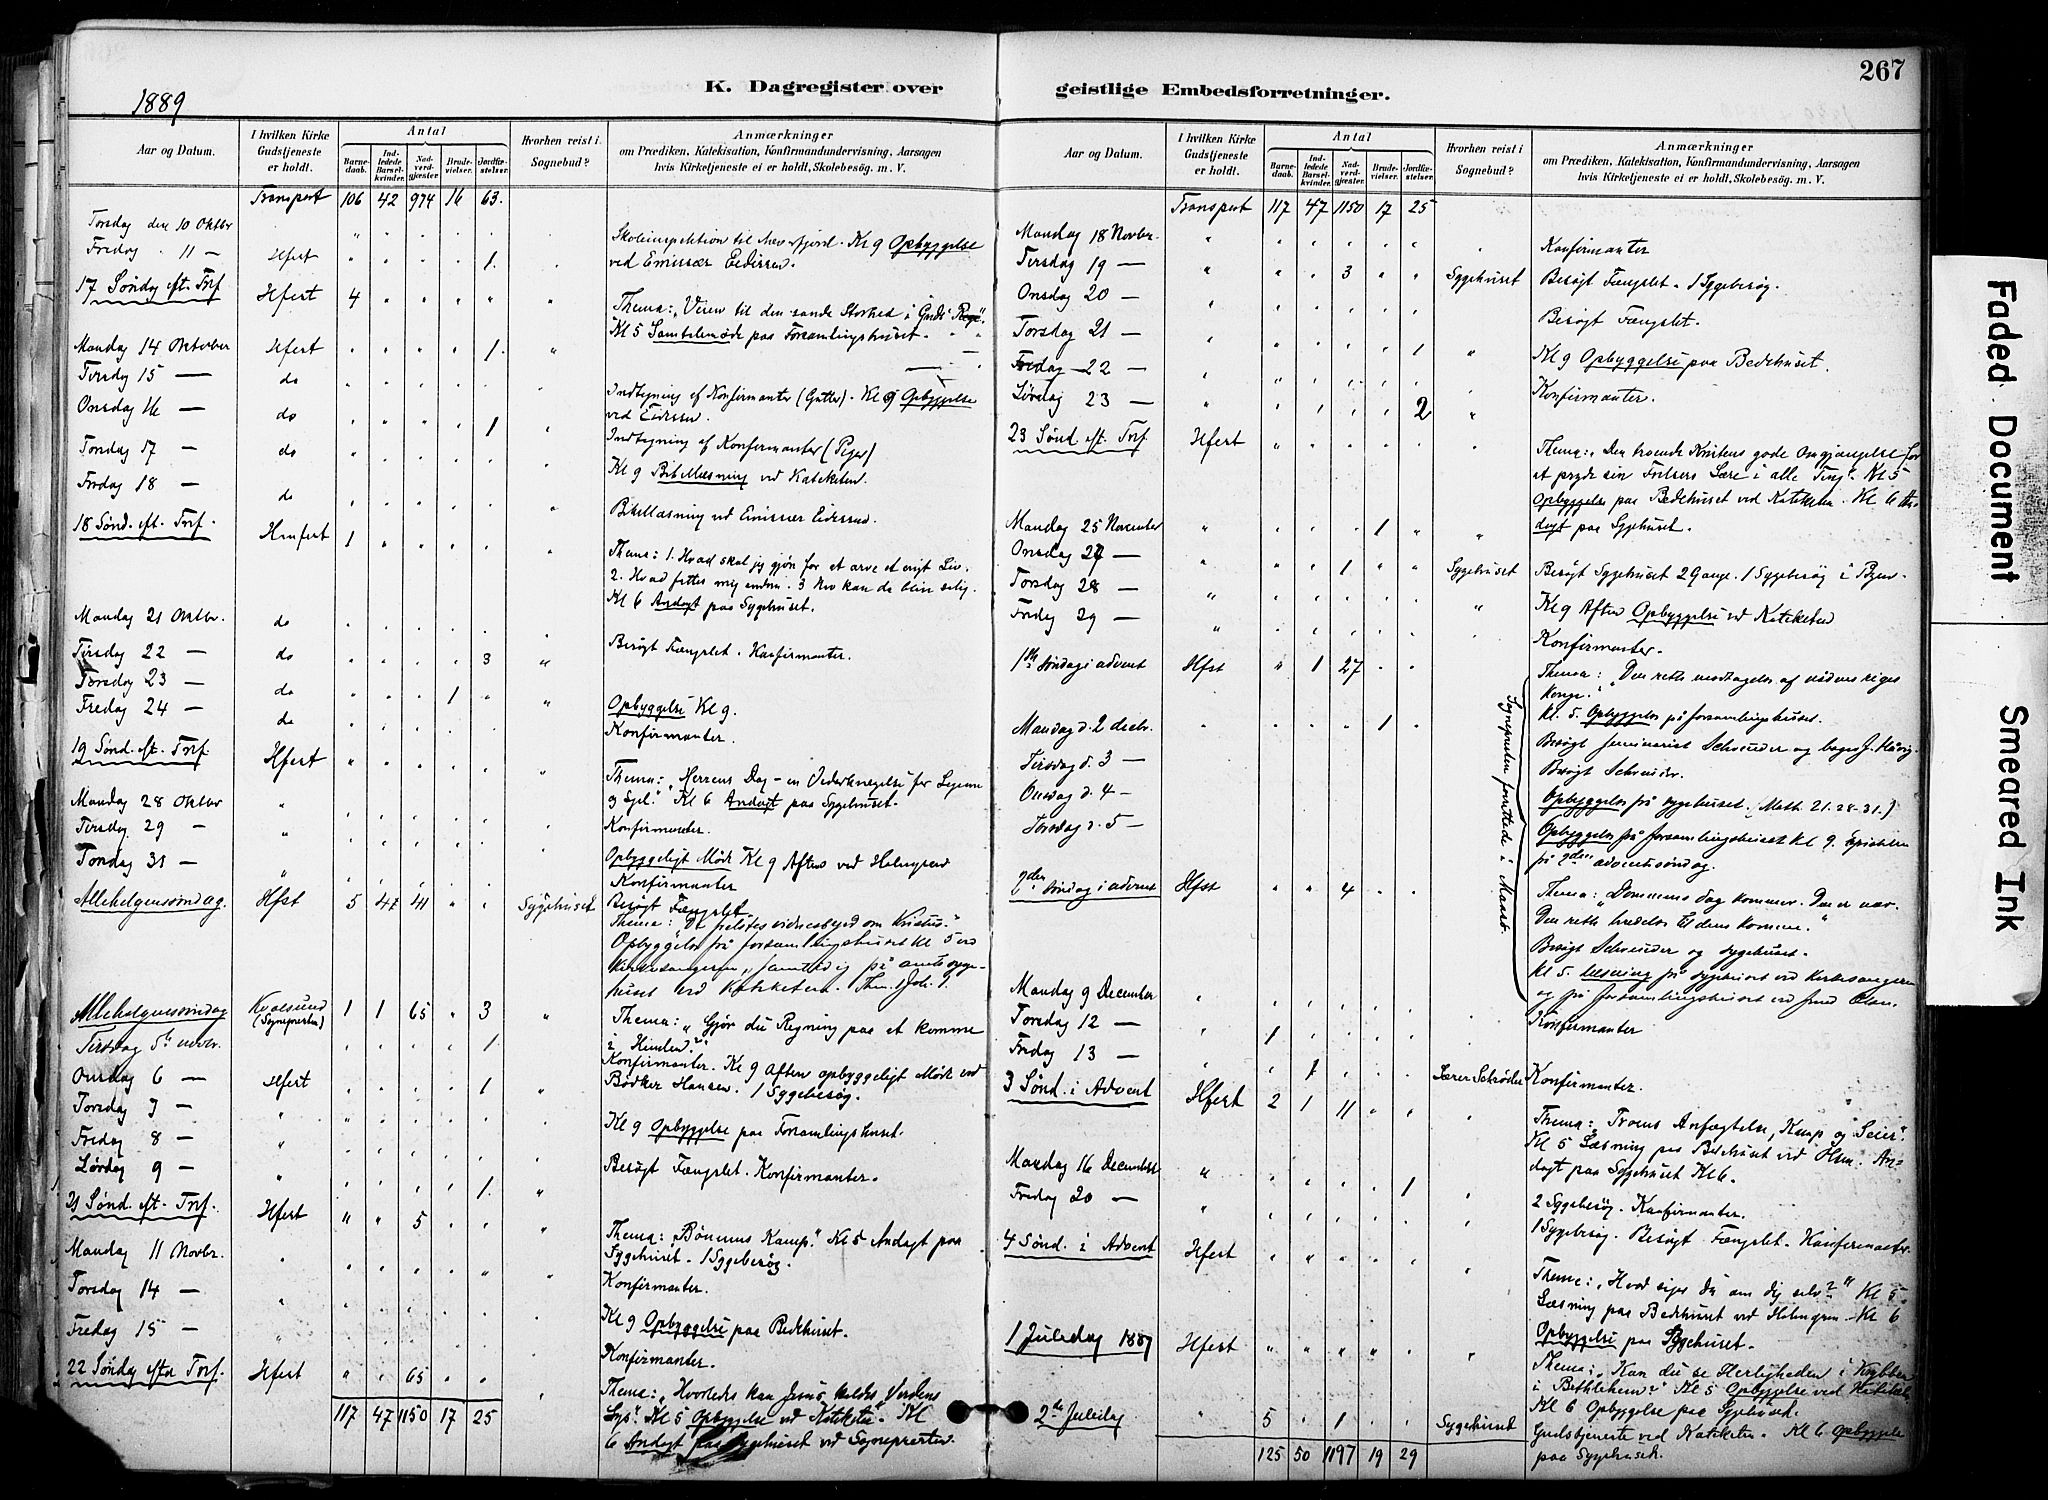 267
1889
K. Dagregister over geistlige Embedsforretninger.
Aar og Datum.
I hvilken Kirke Gudstjeneste er holdt.
Antal
Barnedaab.
Indledede Barselkvinder.
Nadverdgjester
Brudevielser.
Jordfæstelser.
Hvorhen reist i Sognebud?
Anmærkninger
om Prædiken, Katekisation, Konfirmandundervisning, Aarsagen
hvis Kirketjeneste ei er holdt, Skolebesøg. m. V.
Transport 106 42 974 16 63.
Torsdag den 10 Oktbr
Skoleinspektion til
Fredag 11 — Hfest 1. Kl 9 Opbyggelse
ved Emissær Eidissen.
17 Søndag eft. Trf. Hfest 4
Thema: „Veien til den sande Storhed i Guds Rige“.
Kl 5 Samtalemøde paa Forsamlingshuset.
Mandag 14 Oktober Hfest 1.
Tirsdag 15 — do
Indtegning af Konfirmanter (Gutter). Kl 9 Opbyggelse
ved Eidissen.
Onsdag 16 do 1
Indtegning af Konfirmanter (Piger)
Torsdag 17 — do
Kl 9 Bibellæsning ved Kateketen.
Fredag 18 — do
Bibellæsning ved Emissær Eidissen.
18 Sønd. eft. Trf. Hmfest 1
Thema: 1. Hvad skal jeg gjøre for at arve et evigt Liv.
2. Hvad fattes mig endnu. 3 Hvo kan da blive salig.
Kl 6 Andagt paa Sygehuset.
Mandag 21 Oktbr. do
Besøgt Fængslet. Konfirmanter.
Tirsdag 22 — do 3
Torsdag 23 — do 1
Opbyggelse Kl 9.
Fredag 24 — do
Konfirmanter.
19 Sønd. eft. Trf. Hfest
Thema: „Herrens Dag – en Vederkvægelse for Legeme
og Sjel.“ Kl 6 Andagt paa Sygehuset.
Mandag 28 Oktbr
Konfirmanter.
Tirsdag 29 —
Opbyggeligt Møde Kl 9 Aften ved Holmgren
Torsdag 31 —
Konfirmanter
Besøgt Fængslet.
Allehelgensøndag. Hfst 5 47 41 Sygehuset
Thema: „Det frelstes vidnesbyrd om Kristus.“
Opbyggelse på forsamlingshuset kl 5 ved
kirkesangeren, samtidig på amtssyge-
huset ved Kateketen.
Allehelgensøndag Kvalsund (Sognepresten) 1 1 65 3
Thema: „Gjør din Regning paa at komme
i Himlen?“
Tirsdag 5te novbr. 1
Konfirmanter. Kl 9 Aften opbyggeligt Møde ved
Bødker Hansen. 1 Sygebesøg.
Onsdag 6 — Hfest 1
Torsdag 7 —
Kl 9 Opbyggelse paa Forsamlingshuset.
Fredag 8 —
Besøgt Fængslet. Konfirmanter.
Lørdag 9 — 1.
21 Sønd. eft. Trf. Hfest 5
Thema: „Bønnens Kamp.“ Kl 5 Andagt paa
Sygehuset. 1 Sygebesøg.
Mandag 11 Novbr.
Konfirmanter.
Torsdag 14 —
Kl 9 Opbyggelse paa Bedehuset.
Fredag 15 —
Konfirmanter.
22 Søndag efter Trf. Hfest 65
Thema: „Hvorledes kan Jesus kaldes Verdens
Lys“. Kl 5 Opbyggelse ved Kateketen. Kl
6 Andagt paa Sygehuset ved Sognepresten
117 47 1150 17 25
Aar og Datum.
I hvilken Kirke Gudstjeneste er holdt.
Antal
Barnedaab.
Indledede Barselkvinder.
Nadverdgjester
Brudevielser.
Jordfæstelser.
Hvorhen reist i Sognebud?
Anmærkninger
om Prædiken, Katekisation, Konfirmandundervisning, Aarsagen
hvis Kirketjeneste ei er holdt, Skolebesøg. m. V.
Transport 117 47 1150 17 25
Mandag 18 Novbr. Konfirmanter
Tirsdag 19 — 3 Sygehuset Besøgt Fængslet. 1 Sygebesøg.
Onsdag 20 — Besøgt Fængslet.
Torsdag 21 — 1 Kl 9 Opbyggelse paa Bedehuset.
Fredag 22 — Konfirmanter.
Lørdag 23 — 2
23 Sønd. eft. Trf. Hfest
Thema: „Den troende Kristens gode Omgjængelse for
at pryde sin Frelsers Lære i alle Ting“. Kl 5
Opbyggelse paa Bedehuset ved Kateketen. Kl 6 An-
dagt paa Sygehuset.
Mandag 25 November 1
Onsdag 27 — 1 Sygehuset Besøgt Sygehuset 2 Gange. 1 Sygebesøg i Byen.
Torsdag 28 — Kl 9 Aften Opbyggelse ved Kateketen
Fredag 29 — Konfirmanter.
1ste Søndag i advent Hfst 1 27
Thema: „Den rette modtagelse af nådens riges
konge.“
Kl. 5. Opbyggelse på forsamlingshuset.
Mandag d. 2 decbr. 1 Besøgt seminarist Schrøder og
Tirsdag d. 3 — Besøgt Schrøder.
Onsdag d. 4 — Opbyggelse på sygehuset. (Math. 21. 28–31.)
Torsdag d. 5 — Opbyggelse på forsamlingshuset kl 9.
på 2den adventssøndag.
2den søndag i advent Hfst 4
Thema: „Dommens dag kommer. Den er nær.
Den rette beredelse til dens komme.“
Besøgt Schrøder og sygehuset.
Kl 5. læsning på sygehuset ved kirkesangeren
og på forsamlingshuset ved
Sognepresten forrettede i Maasø.
Mandag 9 December Konfirmanter
Torsdag 12 — 1
Fredag 13 — 1 Lærer Schrøder Konfirmanter.
3 Sønd. i Advent Hfest 2 1 11
Thema: „Troens Anfægtelse, Kamp og Seier“.
Kl 5 Læsning paa Bedehuset ved An-
dagt paa Sygehuset Kl 6.
Mandag 16 December 2 Sygebesøg. Konfirmanter.
Fredag 20 — 1 1 Sygebesøg. Besøgt Fængslet. Konfirmanter.
4 Sønd. i Advent Hfest
Thema: „Hvad siger du om dig selv?“ Kl 5
Læsning paa Bedehuset ved Holmgren. Kl 6
Opbyggelse paa Sygehuset.
1 Juledag 1889 Hfest
Thema: „Kan du se Herligheden i Krybben
i Bethlehem?“ Kl 5 Opbyggelse ved
Kl 6 Opbyggelse paa Sygehuset.
2den Juledag 5 1 Sygehuset
Gudstjeneste ved Kateketen. Kl 6 Opbyggelse
paa Sygehuset.
125 50 1197 19 29
Faded Document
Smeared Ink